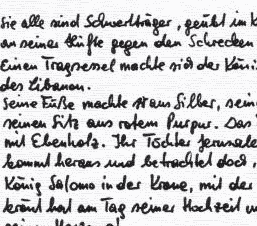 sie alle sind Schwertträger, geübt im K
an seiner Hüfte gegen den Schrecken
Einen Tragsessel machte sich der Köni
des Libanon.
Seine Füße machte er aus Silber, sein
seinen Sitz aus rotem Purpur. Das
mit Ebenholz. Ihr Töchter Jerusale
kommt heraus und betrachtet doch,
König Salomo in der Krone, mit der
krönt hat am Tag seiner Hochzeit u